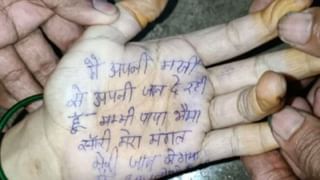 मै अपनी मर्जी
से अपनी जान दे रही
हूँ मम्मी पापा भैया
सॉरी मेरा मंगल
मेरी जान लेगया